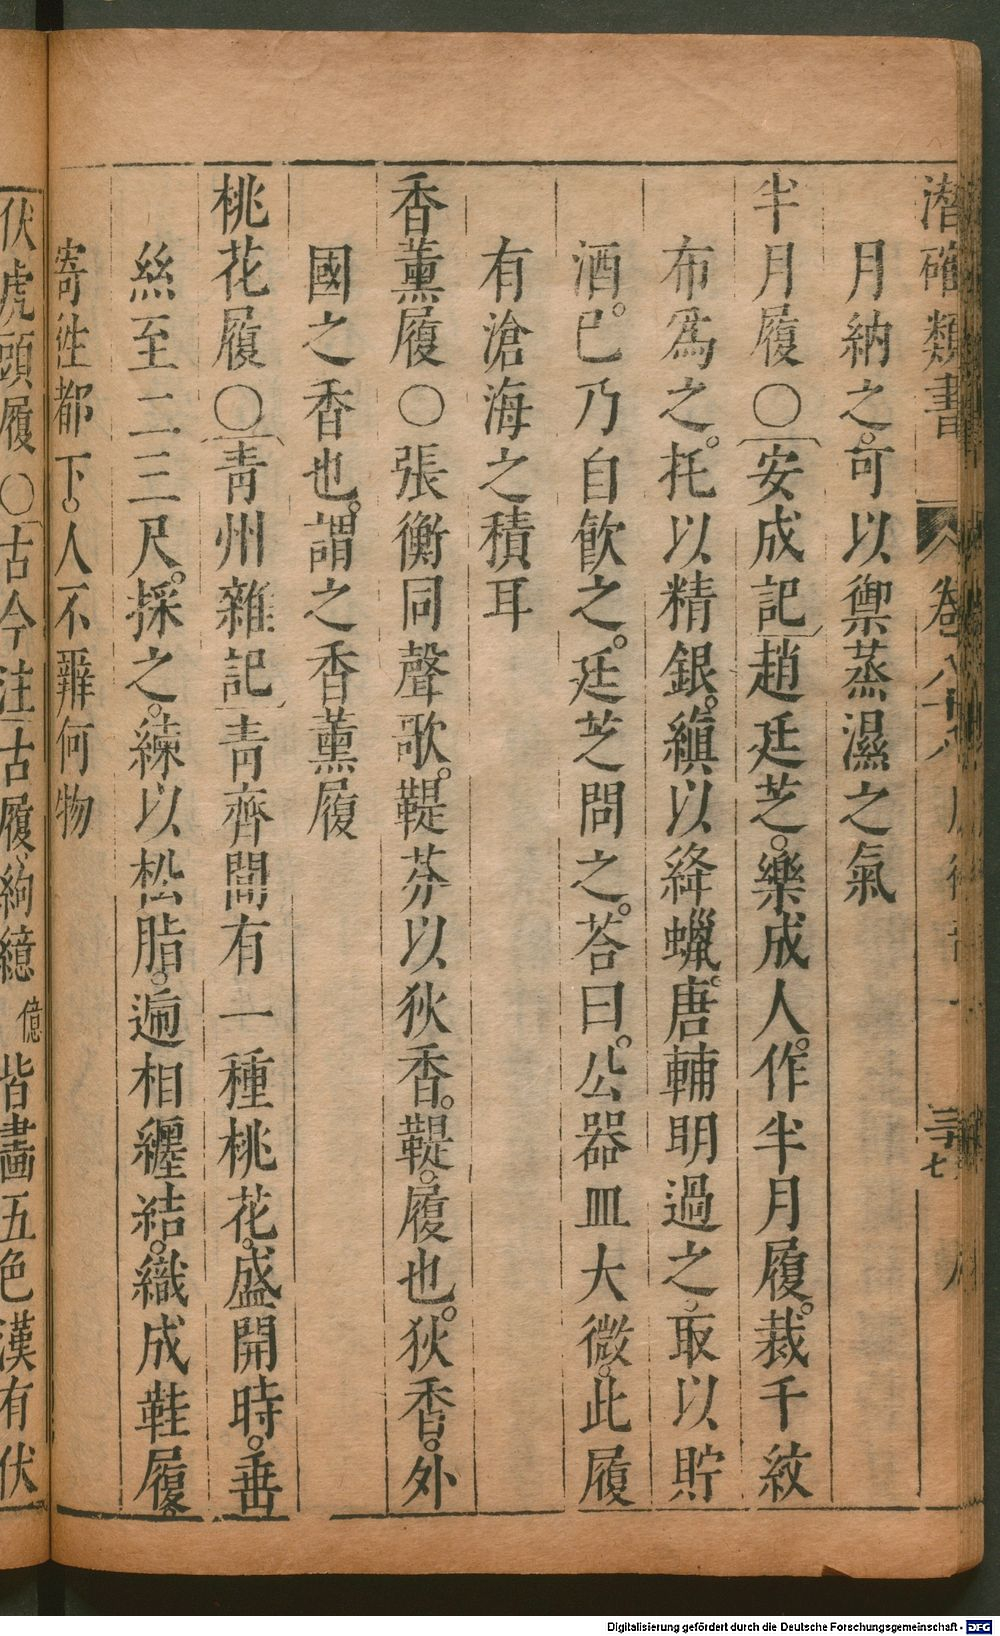 潛確類書 卷八十八
月納之可以禦蒸濕之氣
半月履〇安成記趙廷芝樂成人作半月履裁千紋
布爲之托以精銀縝以絳蠟唐輔明過之取以貯
酒已乃自飮之廷芝問之荅曰公器皿大微此履
有滄海之積耳
香薰履〇張衡同聲歌鞮芬以狄香鞮履也狄香外
國之香也謂之香薰履
桃花履〇靑州雜記靑齊間有一種桃花盛開時垂
絲至二三尺採之練以松脂遍相纒結織成鞋履
寄徃都下人不辨何物
伏虎頭履〇古今注古履絇繶億皆畫五色漢有伏
Digitalisierung gefördert durch die Deutsche Forschungsgemeinschaft - DFG